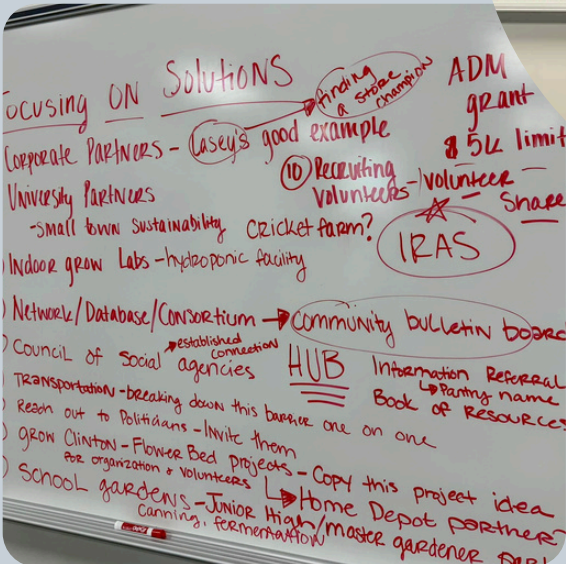 Focusing ON SolutioNS
finding
a store
champion
ADM
grant
$5k limit
Corporate Partners - Casey's good example
10 Recruiting
Volunteers - 1 volunteer
Share
University Partners
-small town sustainability cricket farm?
IRAS
Indoor grow Labs - hydroponic facility
Network/Database/Consortium → community bulletin board
Council of Social agencies
→ established
connection
HUB
Information Referral
↳ Pantry name
Book of Resources
Transportation - breaking down this barrier one on one
Reach out to Politicians - Invite them
grow Clinton - Flower Bed projects - Copy this project idea
for organization & volunteers
↳ Home Depot partner?
School gardens - Junior High/master gardener
Canning, fermentation